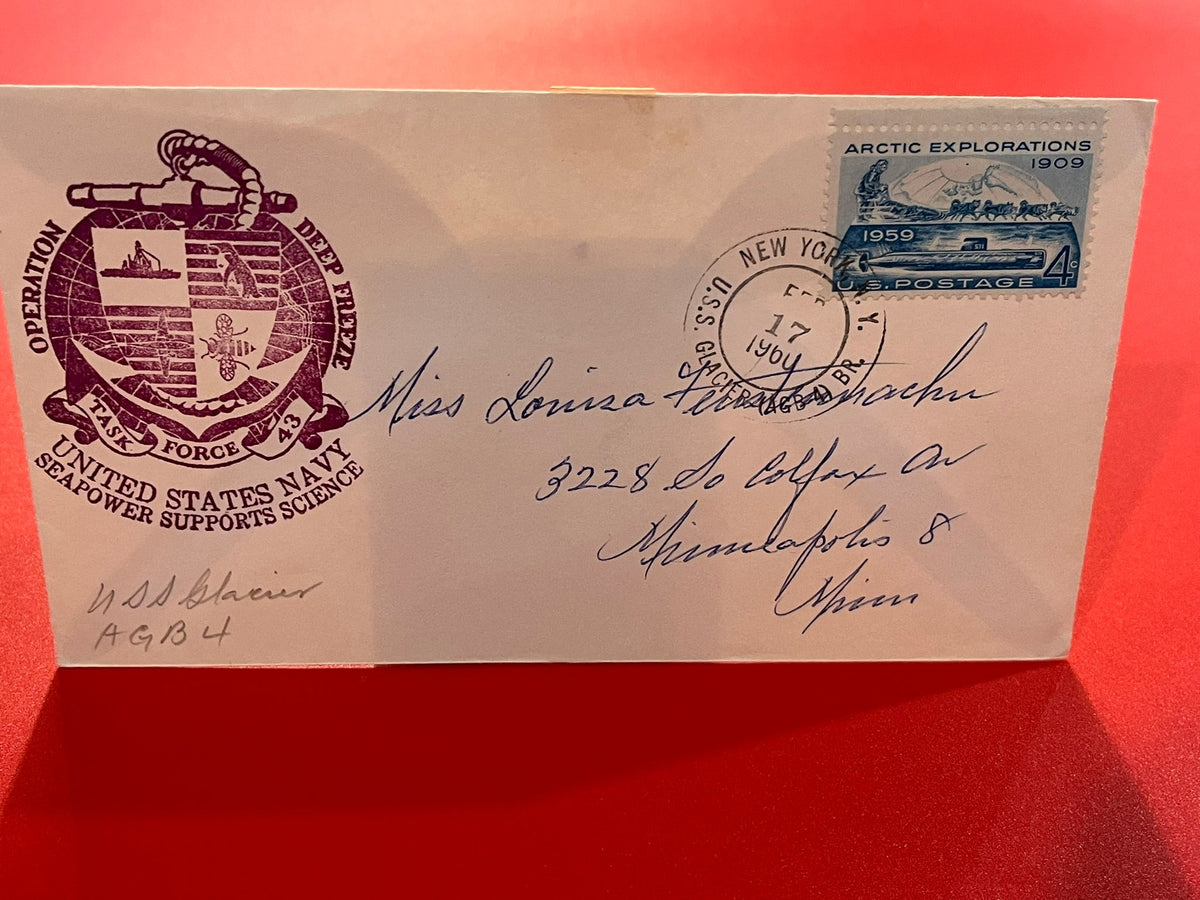 OPERATION
DEEP FREEZE
TASK FORCE 43
UNITED STATES NAVY
SEAPOWER SUPPORTS SCIENCE
ARCTIC EXPLORATIONS
1909
1959
571
4c
U.S. POSTAGE
NEW YORK, N.Y.
FEB
17
1960
U.S.S. GLACIER (AGB-4) BR.
Miss Louisa
3228 So Colfax Av
Minneapolis 8
Minn
USS Glacier
AGB 4